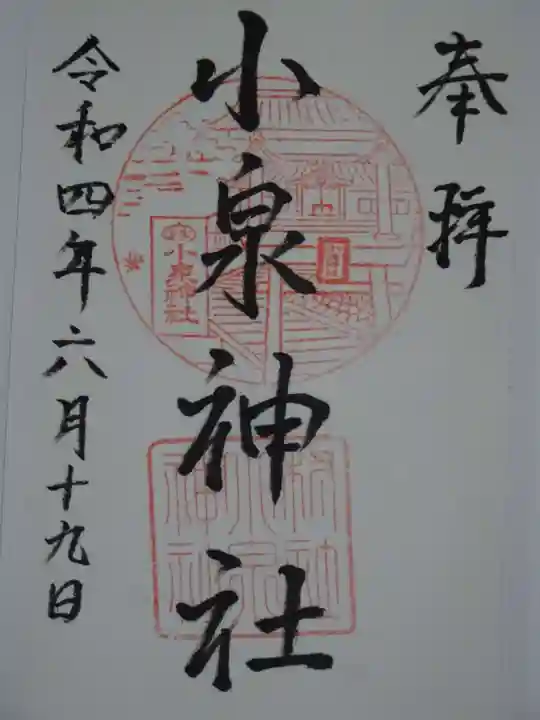 奉拝
小泉神社
小泉神社
令和四年六月十九日